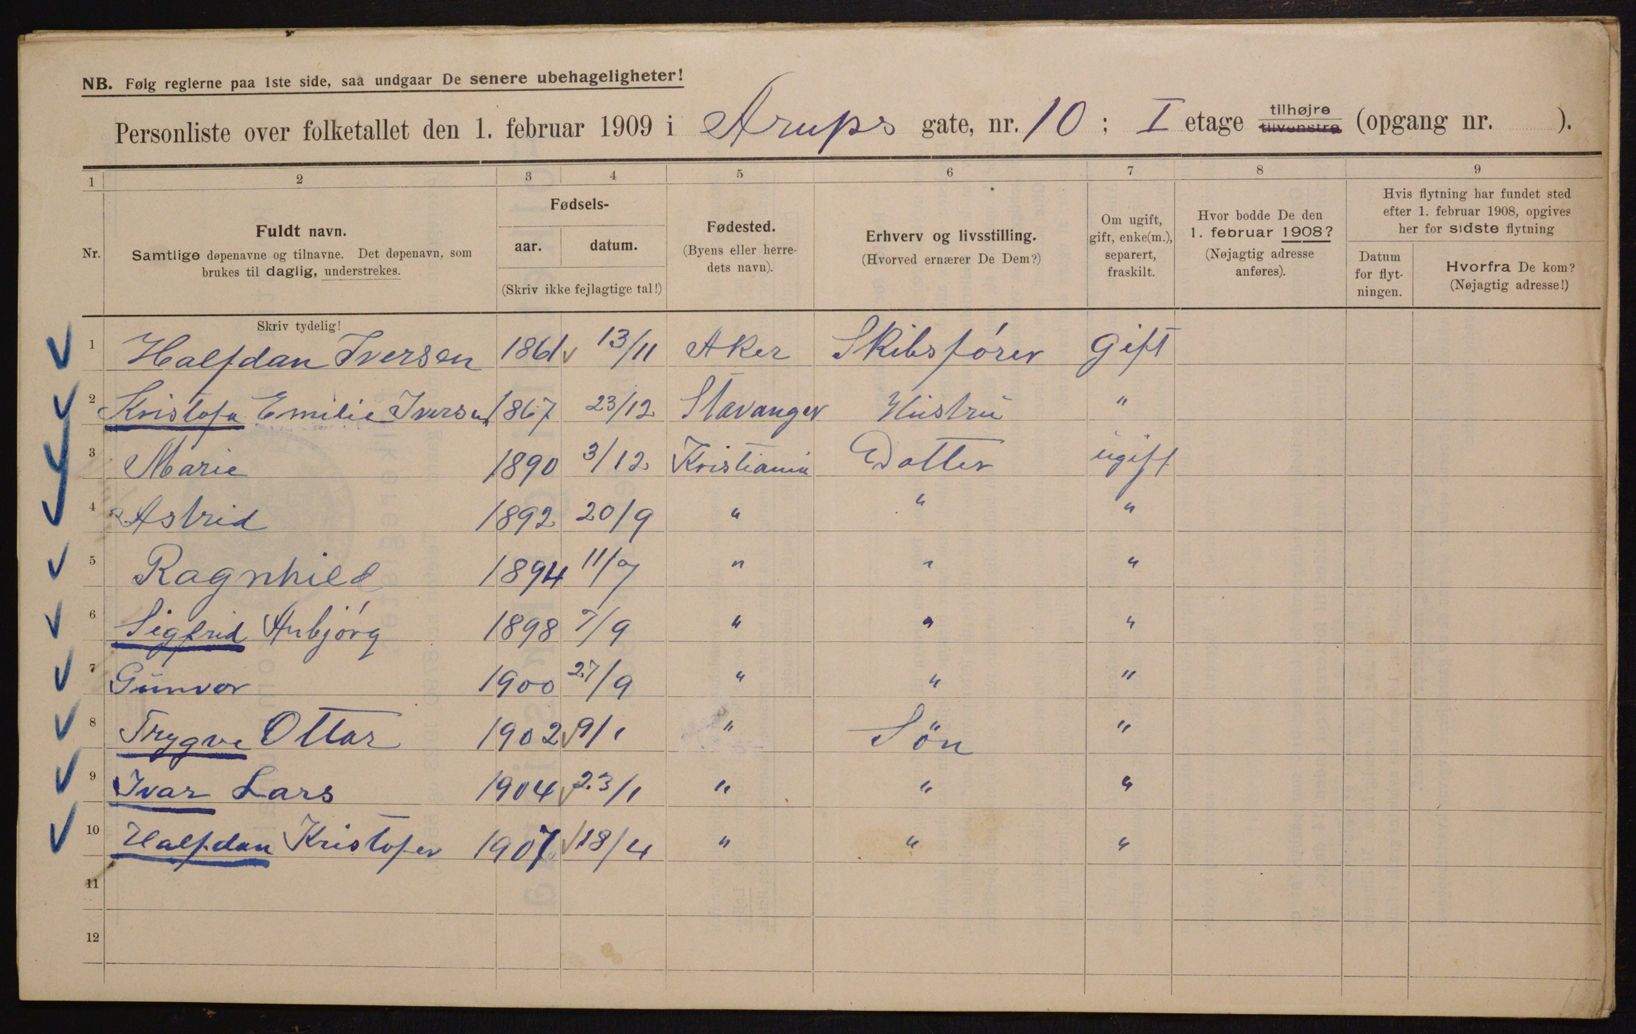 NB. Følg reglerne paa 1ste side, saa undgaar De senere ubehageligheter!
Personliste over folketallet den 1. februar 1909 i Arups gate, nr. 10 ; I etage tilhøjre tilvenstre (opgang nr. ).
1 2 3 4 5 6 7 8 9
Nr. Fuldt navn. Samtlige døpenavne og tilnavne. Det døpenavn, som brukes til daglig, understrekes.
Fødsels-
aar. datum.
(Skriv ikke fejlagtige tal!)
Fødested. (Byens eller herre-dets navn).
Erhverv og livsstilling. (Hvorved ernærer De Dem?)
Om ugift, gift, enke(m.), separert, fraskilt.
Hvor bodde De den 1. februar 1908? (Nøjagtig adresse anføres).
Hvis flytning har fundet sted efter 1. februar 1908, opgives her for sidste flytning
Datum for flyt-ningen.
Hvorfra De kom? (Nøjagtig adresse!)
Skriv tydelig!
1 Halfdan Iversen 1861 13/11 Aker Skibsfører gift
2 Kristofa Emilie Iversen 1867 23/12 Stavanger Hustru "
3 Marie 1890 3/12 Kristiania Datter ugift
4 Astrid 1892 20/9 " " "
5 Ragnhild 1894 11/7 " " "
6 Sigfrid Anbjørg 1898 7/9 " " "
7 Gunvor 1900 27/9 " " "
8 Trygve Ottar 1902 9/1 " Søn "
9 Ivar Lars 1904 23/1 " " "
10 Halfdan Kristofer 1907 18/4 " " "
11
12